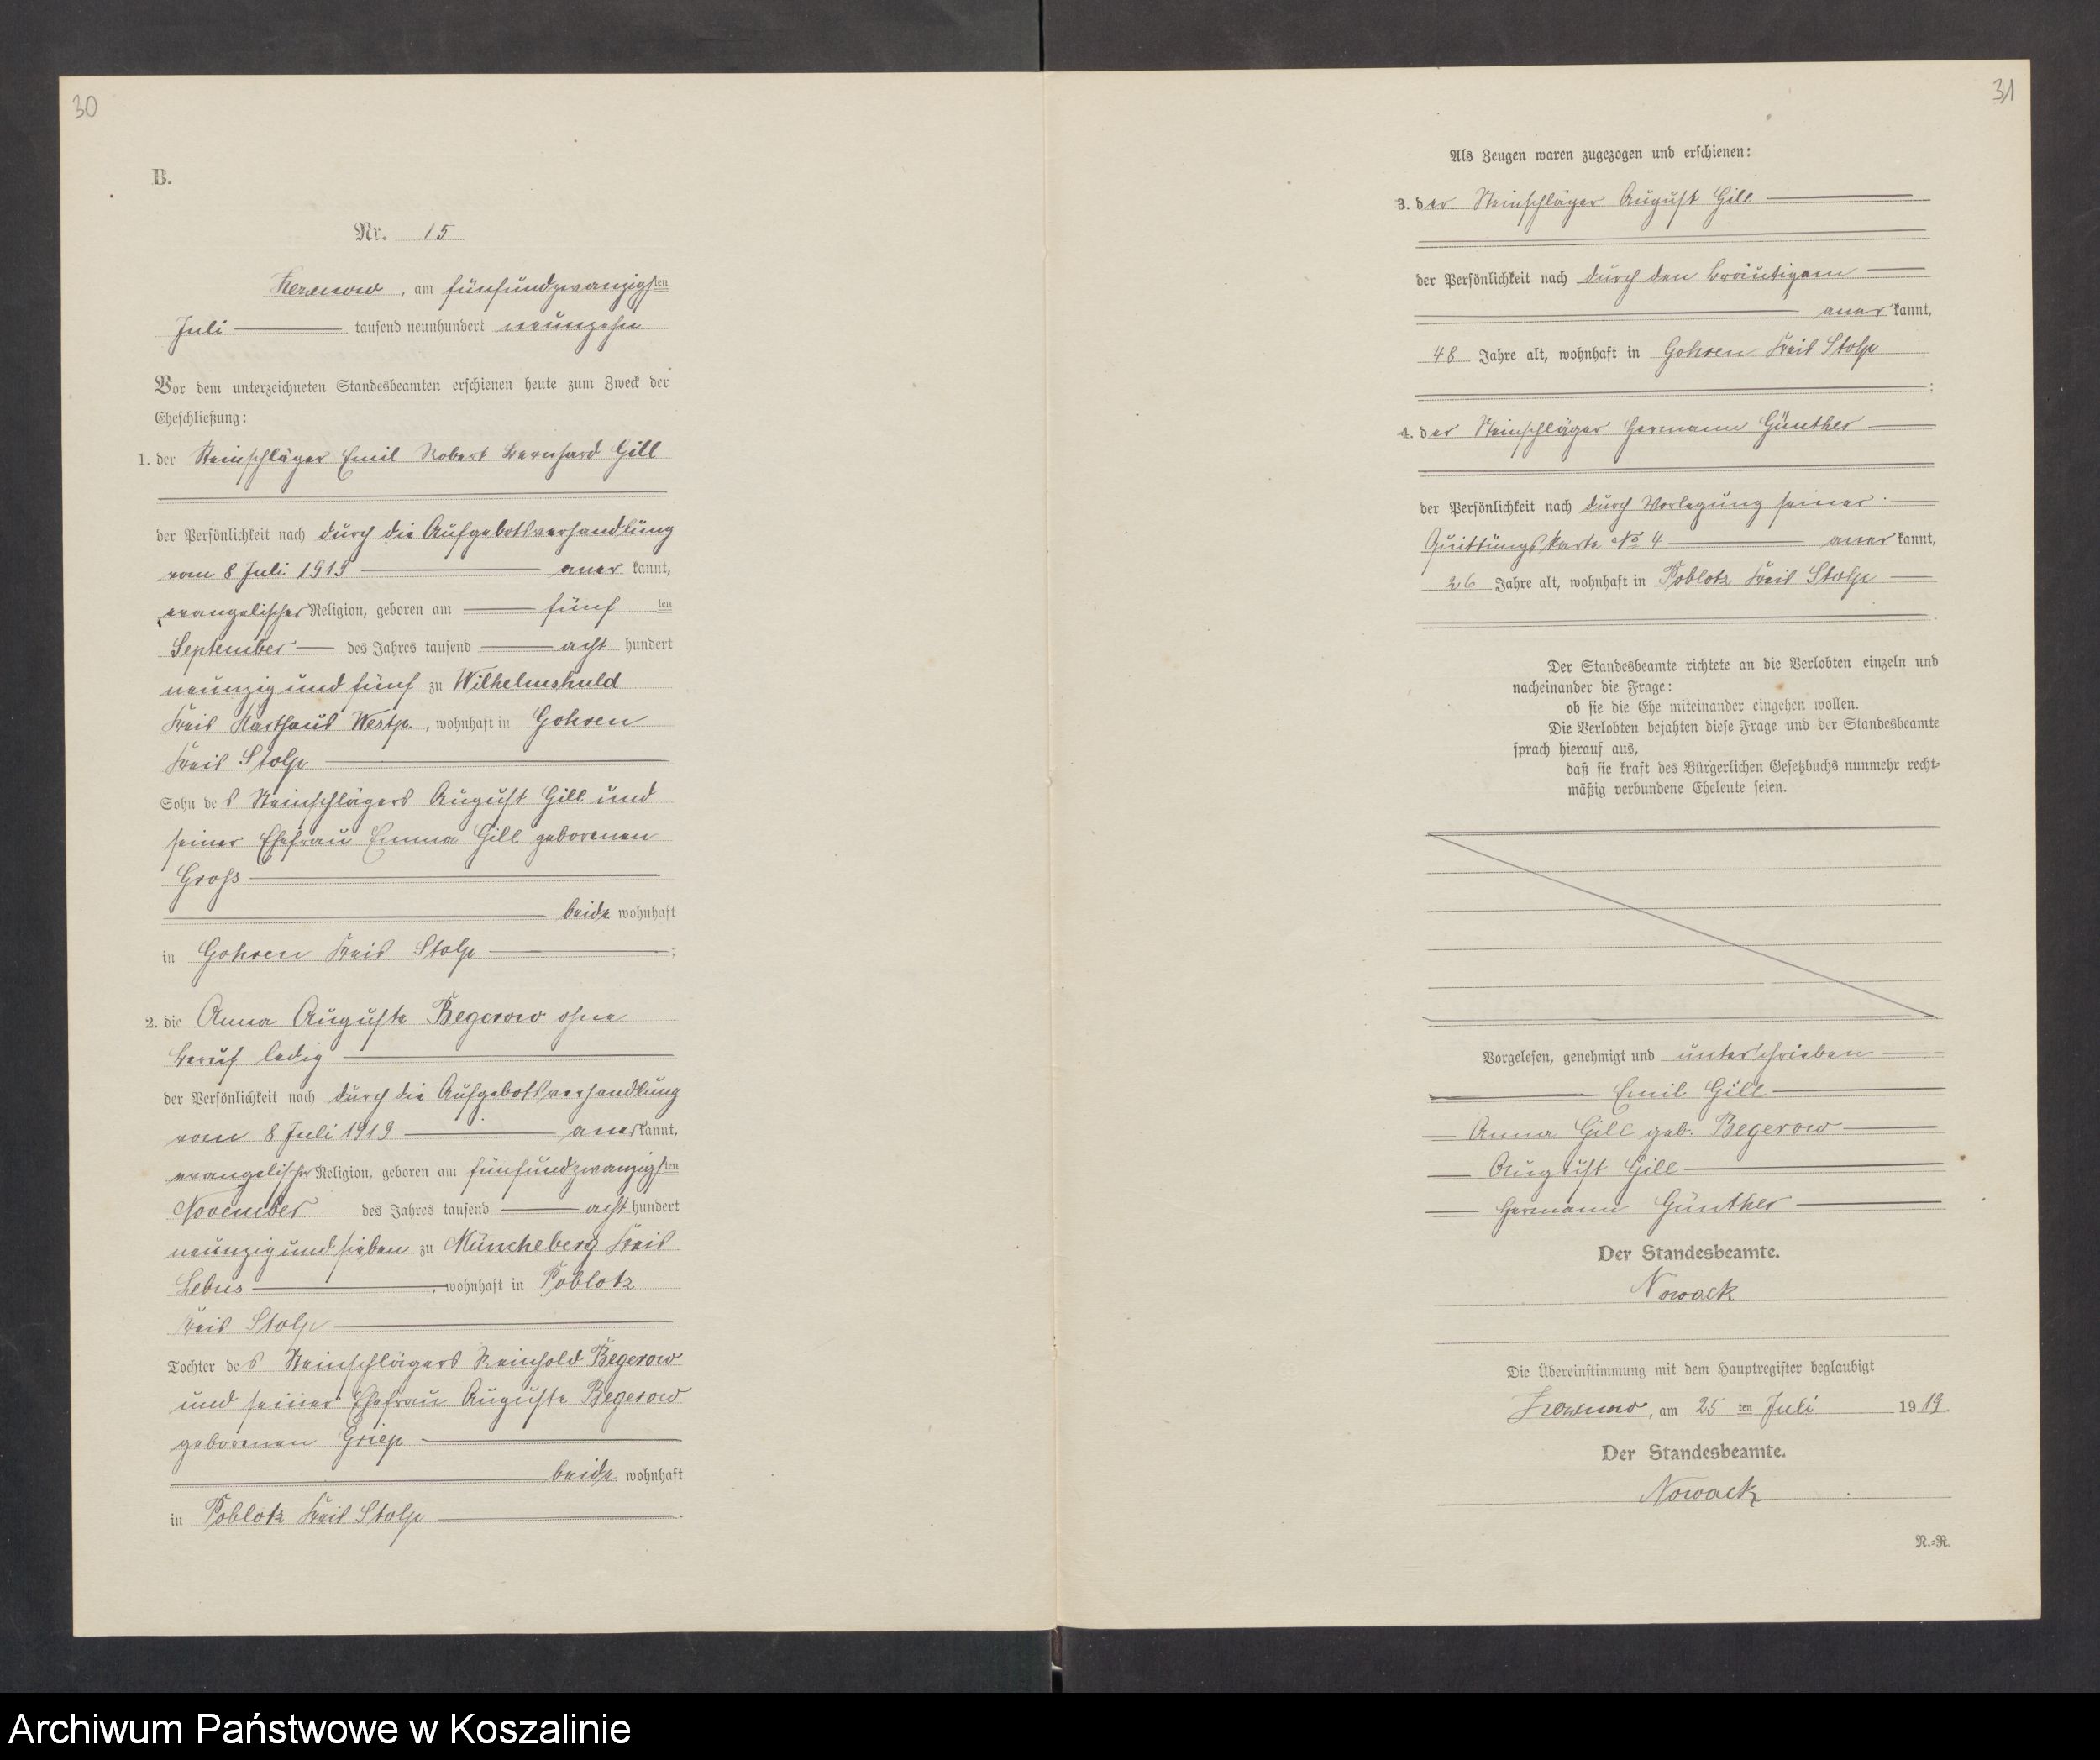 30
B.
Nr. 15
Zezenow, am fünfundzwanzigsten
Juli tausend neunhundert neunzehn
Vor dem unterzeichneten Standesbeamten erschienen heute zum Zweck der
Eheschließung:
1. der Steinschläger Emil Robert Bernhard Gill
der Persönlichkeit nach durch die Aufgebotsverhandlung
vom 8 Juli 1919 anerkannt,
evangelischer Religion, geboren am fünf ten
September des Jahres tausend acht hundert
neunzig und fünf zu Wilhelmshuld
Kreis Karthaus Westp., wohnhaft in Gohren
Kreis Stolp
Sohn des Steinschlägers August Gill und
seiner Ehefrau Emma Gill geborenen
Groß
beide wohnhaft
in Gohren Kreis Stolp;
2. die Anna Auguste Begerow ohne
Beruf ledig
der Persönlichkeit nach durch die Aufgebotsverhandlung
vom 8 Juli 1919 anerkannt,
evangelischer Religion, geboren am fünfundzwanzigsten
November des Jahres tausend acht hundert
neunzig und sieben zu Müncheberg Kreis
Lebus, wohnhaft in Poblotz
Kreis Stolp
Tochter des Steinschlägers Reinhold Begerow
und seiner Ehefrau Auguste Begerow
geborenen Griep
beide wohnhaft
in Poblotz Kreis Stolp.
31
Als Zeugen waren zugezogen und erschienen:
3. der Steinschläger August Gill
der Persönlichkeit nach durch den Bräutigam
anerkannt,
48 Jahre alt, wohnhaft in Gohren Kreis Stolp
;
4. der Steinschläger Hermann Günther
der Persönlichkeit nach durch Vorlegung seiner
Quittungskarte No 4 anerkannt,
26 Jahre alt, wohnhaft in Poblotz Kreis Stolp
Der Standesbeamte richtete an die Verlobten einzeln und
nacheinander die Frage:
ob sie die Ehe miteinander eingehen wollen.
Die Verlobten bejahten diese Frage und der Standesbeamte
sprach hierauf aus,
daß sie kraft des Bürgerlichen Gesetzbuchs nunmehr recht-
mäßig verbundene Eheleute seien.
Vorgelesen, genehmigt und unterschrieben
Emil Gill
Anna Gill geb. Begerow
August Gill
Hermann Günther
Der Standesbeamte.
Nowack
Die Übereinstimmung mit dem Hauptregister beglaubigt
Zezenow, am 25 ten Juli 1919.
Der Standesbeamte.
Nowack
N.-R.
Archiwum Państwowe w Koszalinie